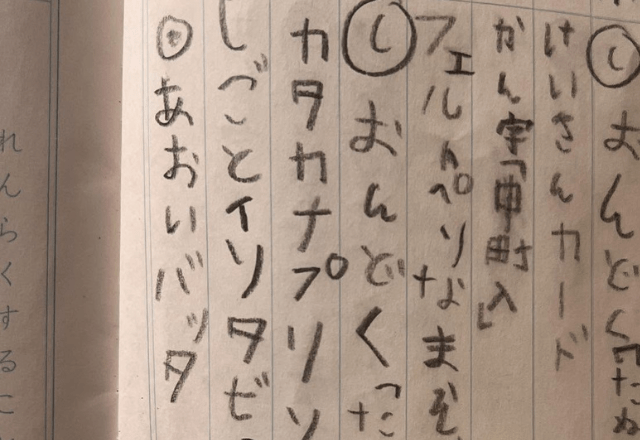 し おんどく「たぬ
けいさんカード
かん字「車町入」
フェルトペン なまえ
し おんどく「た
カタカナプリン
しごとインタビ
◎あおいバッタ
れんらくするこ